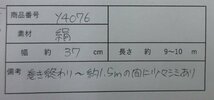 商品番号 Y4076
素材 絹
幅 約 37 cm 長さ 約 9～10 m
備考 巻き終わり～約1.5mの間に少々シミあり